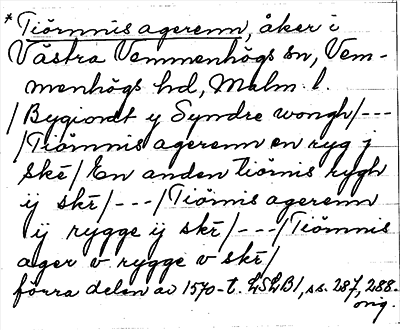 *Tiörnnis agerenn, åker i
Västra Vemmenhögs sn, Vem-
menhögs hd, Malm. l.
/Bygiordt y Syndre wongh/---
/Tiörnnis agerenn en ryg j
skē/En anden tiörnis rygh
ij skē/---/Tiörnis agerenn
ij rygge ij skē/---/Tiörnnis
ager v rygge v skē/
förra delen av 1570-t. LSLB1, ss. 287, 288.
orig.